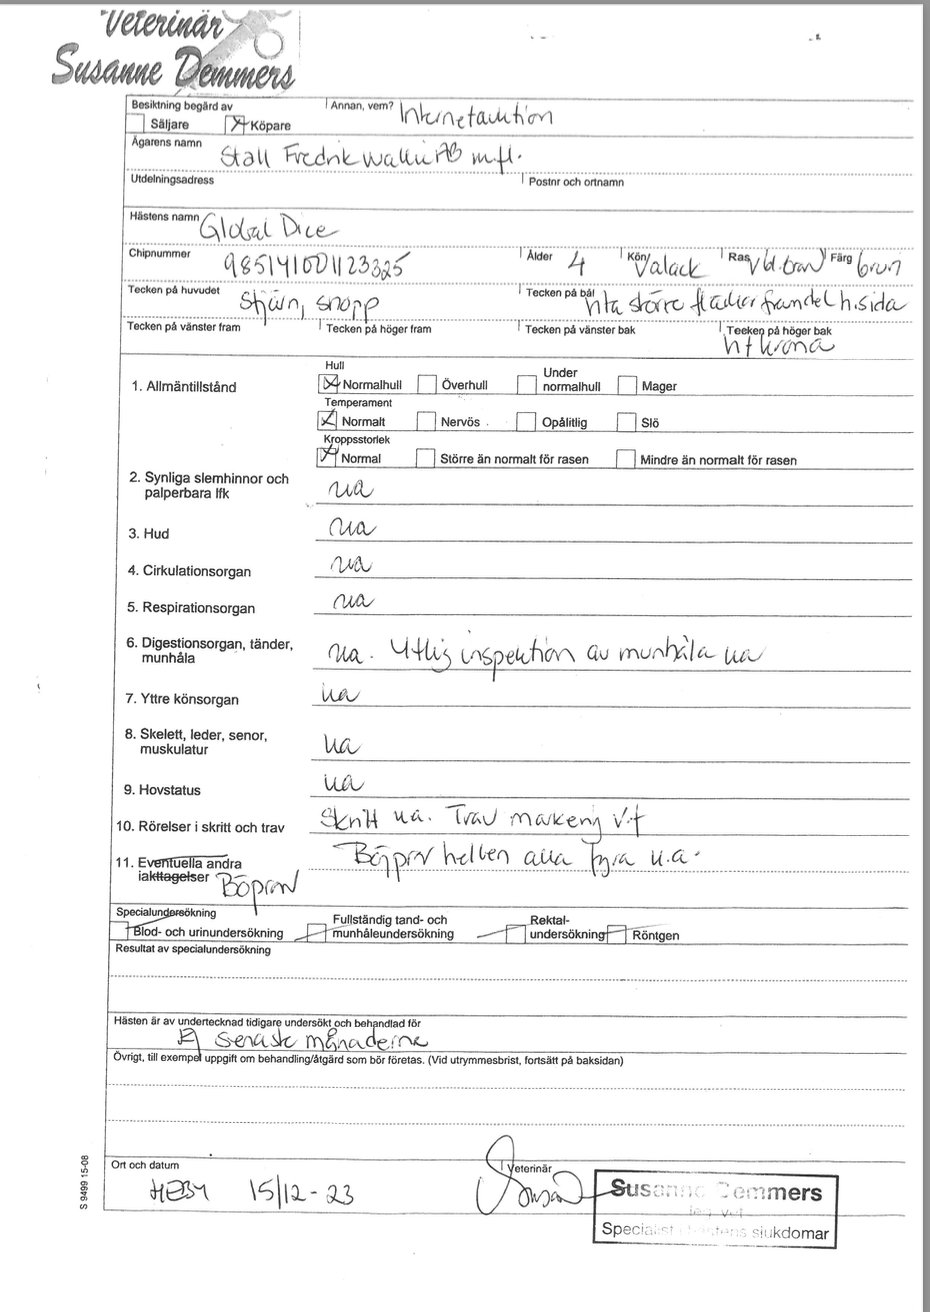 Veterinär
Susanne Demmers
Besiktning begärd av
Annan, vem? Internetauktion
Säljare
Köpare
Ägarens namn
Stall Fredrik Wallin AB m.fl.
Utdelningsadress
Postnr och ortnamn
Hästens namn Global Dice
Chipnummer 985141001123325
Ålder 4
Kön Valack
Ras
Färg brun
Tecken på huvudet Stjärn, snopp
Tecken på bål vita större fläckar framdel h.sida
Tecken på vänster fram
Tecken på höger fram
Tecken på vänster bak
Tecken på höger bak
krona
1. Allmäntillstånd
Hull
Normalhull
Överhull
Under normalhull
Mager
Temperament
Normalt
Nervös
Opålitlig
Slö
Kroppsstorlek
Normal
Större än normalt för rasen
Mindre än normalt för rasen
2. Synliga slemhinnor och
palperbara lfk
ua
3. Hud
ua
4. Cirkulationsorgan
ua
5. Respirationsorgan
ua
6. Digestionsorgan, tänder,
munhåla
ua. Ytlig inspektion av munhåla ua
7. Yttre könsorgan
ua
8. Skelett, leder, senor,
muskulatur
ua
9. Hovstatus
ua
10. Rörelser i skritt och trav
Skritt ua. Trav
11. Eventuella andra
iakttagelser Böjprov
Böjprov helben alla fyra u.a.
Specialundersökning
Blod- och urinundersökning
Fullständig tand- och
munhåleundersökning
Rektal-
undersökning
Röntgen
Resultat av specialundersökning
Hästen är av undertecknad tidigare undersökt och behandlad för
Ej senaste månaderna
Övrigt, till exempel uppgift om behandling/åtgärd som bör företas. (Vid utrymmesbrist, fortsätt på baksidan)
Ort och datum
HEBY 15/12-23
Veterinär
Susanne Demmers
leg vet
Specialist i hästens sjukdomar
S 9499 15-08